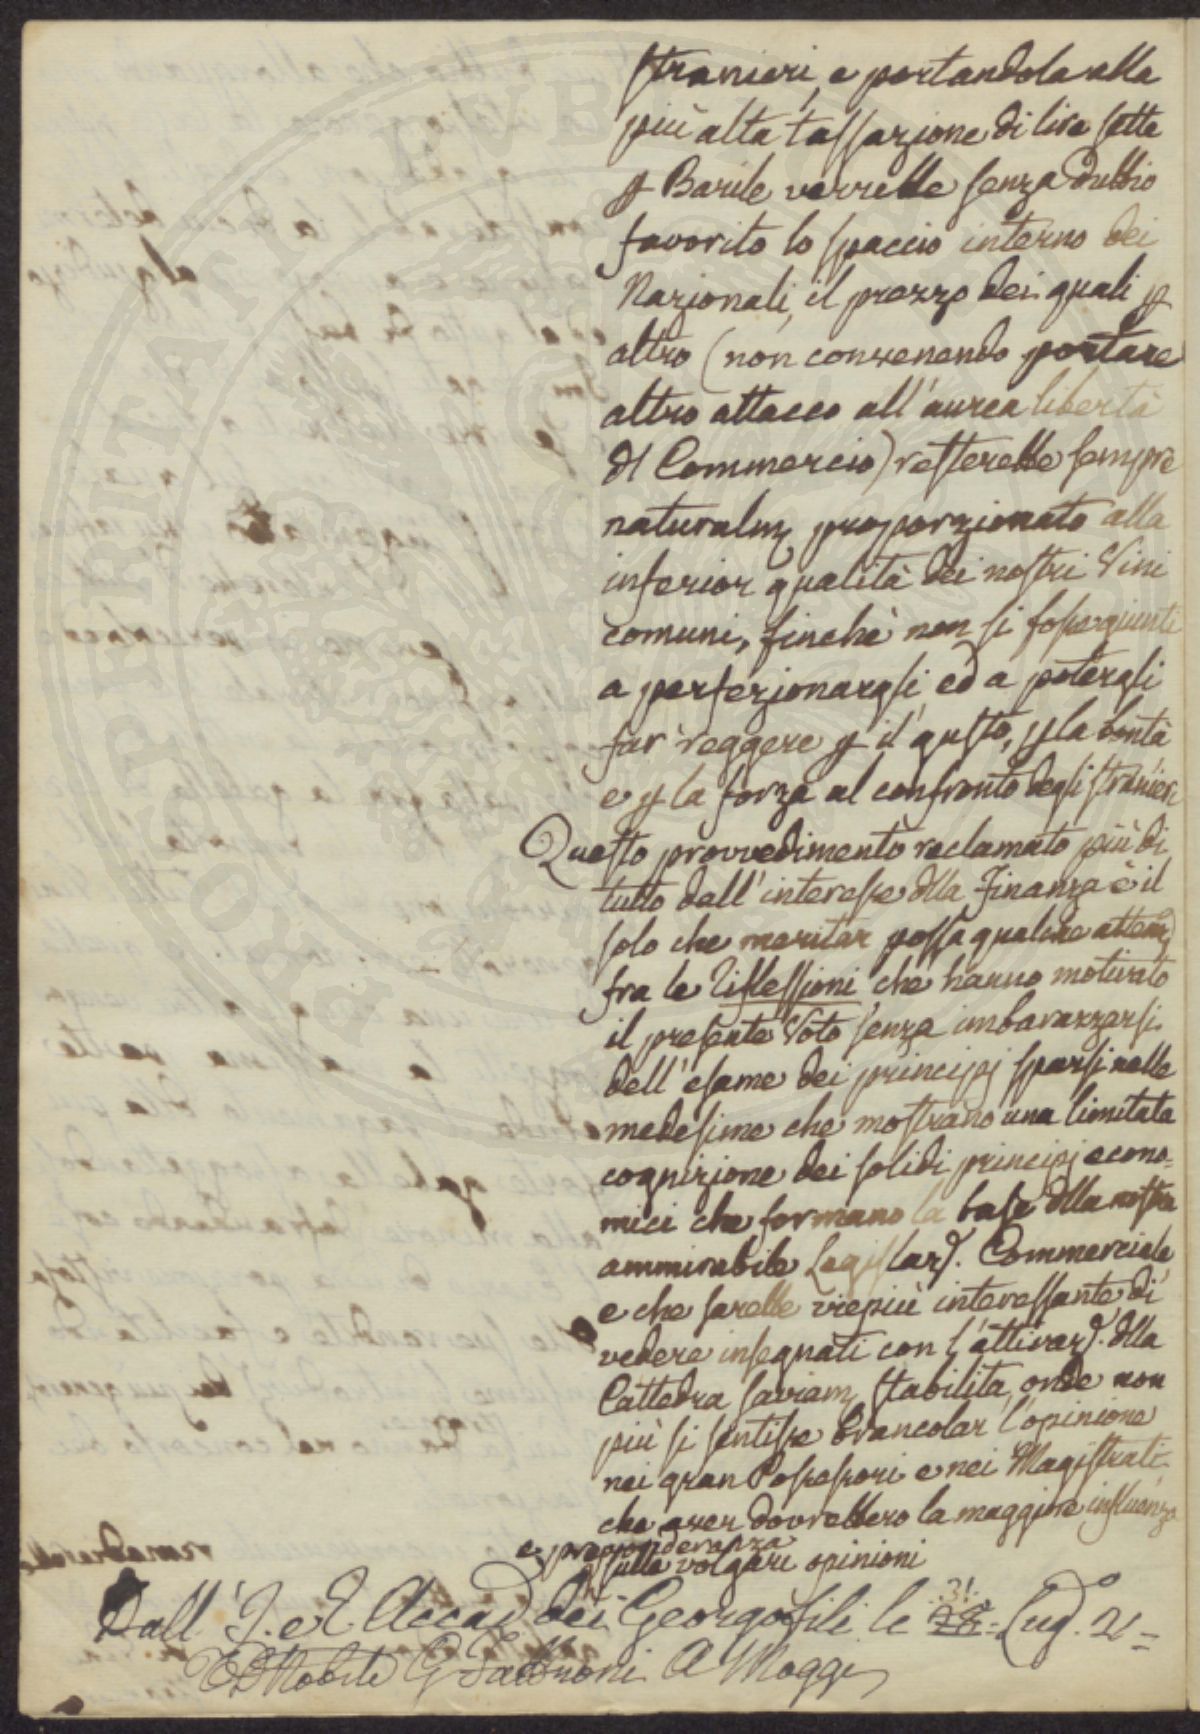 Stranieri, e portandola alla
più alta tassazione di lire sette
p Barile verrebbe senza dubbio
favorito lo spaccio interno dei
Nazionali, il prezzo dei quali p
altro (non convenendo portare
altro attacco all'aurea libertà
dl Commercio) resterebbe sempre
naturalm proporzionato alla
inferior qualità dei nostri Vini
comuni, finchè non si fosse giunti
a perfezionargli, ed a potergli
far reggere p il gusto, p la bontà
e p la forza al confronto degli stranieri
Questo provvedimento reclamato più di
tutto dall'interesse dlla Finanza è il
solo che meritar possa qualche attenz
fra le riflessioni che hanno motivato
il presente Voto senza imbarazzarsi
dell'esame dei principj sparsi nelle
medesime che mostrano una limitata
cognizione dei solidi principj econo-
mici che formano la base dlla nostra
ammirabile Legislaz. Commerciale
e che sarebbe viepiù interessante di
vedere insegnati con l'attivaz. dlla
Cattedra saviam stabilita, onde non
più si sentisse brancolar l'opinione
nei gran Possessori e nei Magistrati
che aver dovrebbero la maggiore influenza
e preponderanza
sulle volgari opinioni
Dall'I. e R. Accad. dei Georgofili le 28 31. Lug. 21=
G Tartini A Moggi
PROSPERITATI PUBLICAE